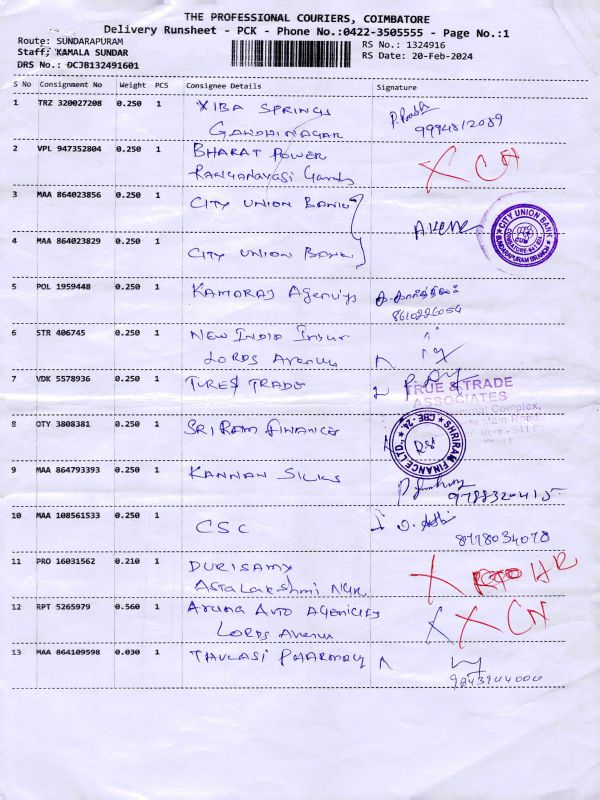 THE PROFESSIONAL COURIERS, COIMBATORE
Delivery Runsheet - PCK - Phone No.:0422-3505555 - Page No.:1
Route: SUNDARAPURAM
RS No.: 1324916
Staff; KAMALA SUNDAR
RS Date: 20-Feb-2024
DRS No.: DCJB132491601
S No Consignment No Weight PCS Consignee Details Signature
1 TRZ 320027208 0.250 1 XIBA SPRINGS
GANDHINAGAR 9994812089
2 VPL 947352804 0.250 1 BHARAT POWER X CN
3 MAA 864023856 0.250 1 CITY UNION BANK
CITY UNION BANK
SUNDARAPURAM BRANCH
4 MAA 864023829 0.250 1 CITY UNION BANK
5 POL 1959448 0.250 1 KAMARAJ Agencys
8610226054
6 STR 406745 0.250 1 NEW INDIA Insur
LORDS Avenue
7 VDK 5578936 0.250 1 TURE & TRADE
TRUE & TRADE
ASSOCIATES
Complex,
8 OTY 3808381 0.250 1 SRI RAM FINANCE
SHRIRAM FINANCE LTD * CBE-24
9 MAA 864793393 0.250 1 KANNAN SILKS
9788320415
10 MAA 108561533 0.250 1 CSC
8778034078
11 PRO 16031562 0.210 1 DURISAMY X
ASTALAKSHMI NGR
12 RPT 5265979 0.560 1 Aruna AUTO AGENCIES X X CN
LORDS Avenue
13 MAA 864109598 0.030 1 THULASI PHARMACY
9843904000